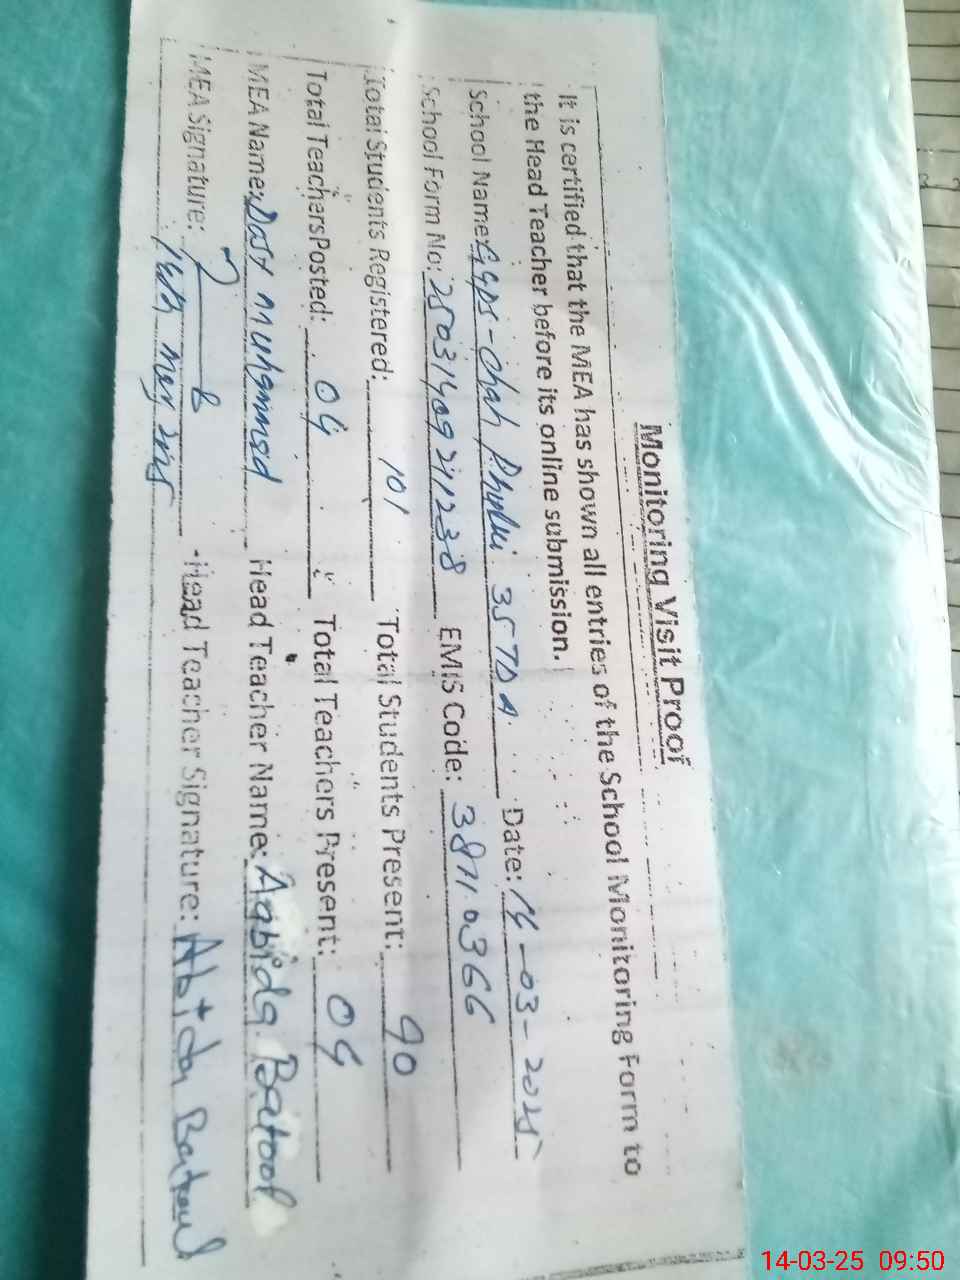 Monitoring Visit Proof
It is certified that the MEA has shown all entries of the School Monitoring Form to
the Head Teacher before its online submission.
School Name: GGPS - Chah 35 TDA Date: 14-03-2025
School Form No: EMIS Code: 38710366
Total Students Registered: 101 Total Students Present: 90
Total Teachers Posted: 04 Total Teachers Present: 04
MEA Name: Dost Muhammad Head Teacher Name: Aabida Batool
MEA Signature: Head Teacher Signature: Abida Batool
14-03-25 09:50